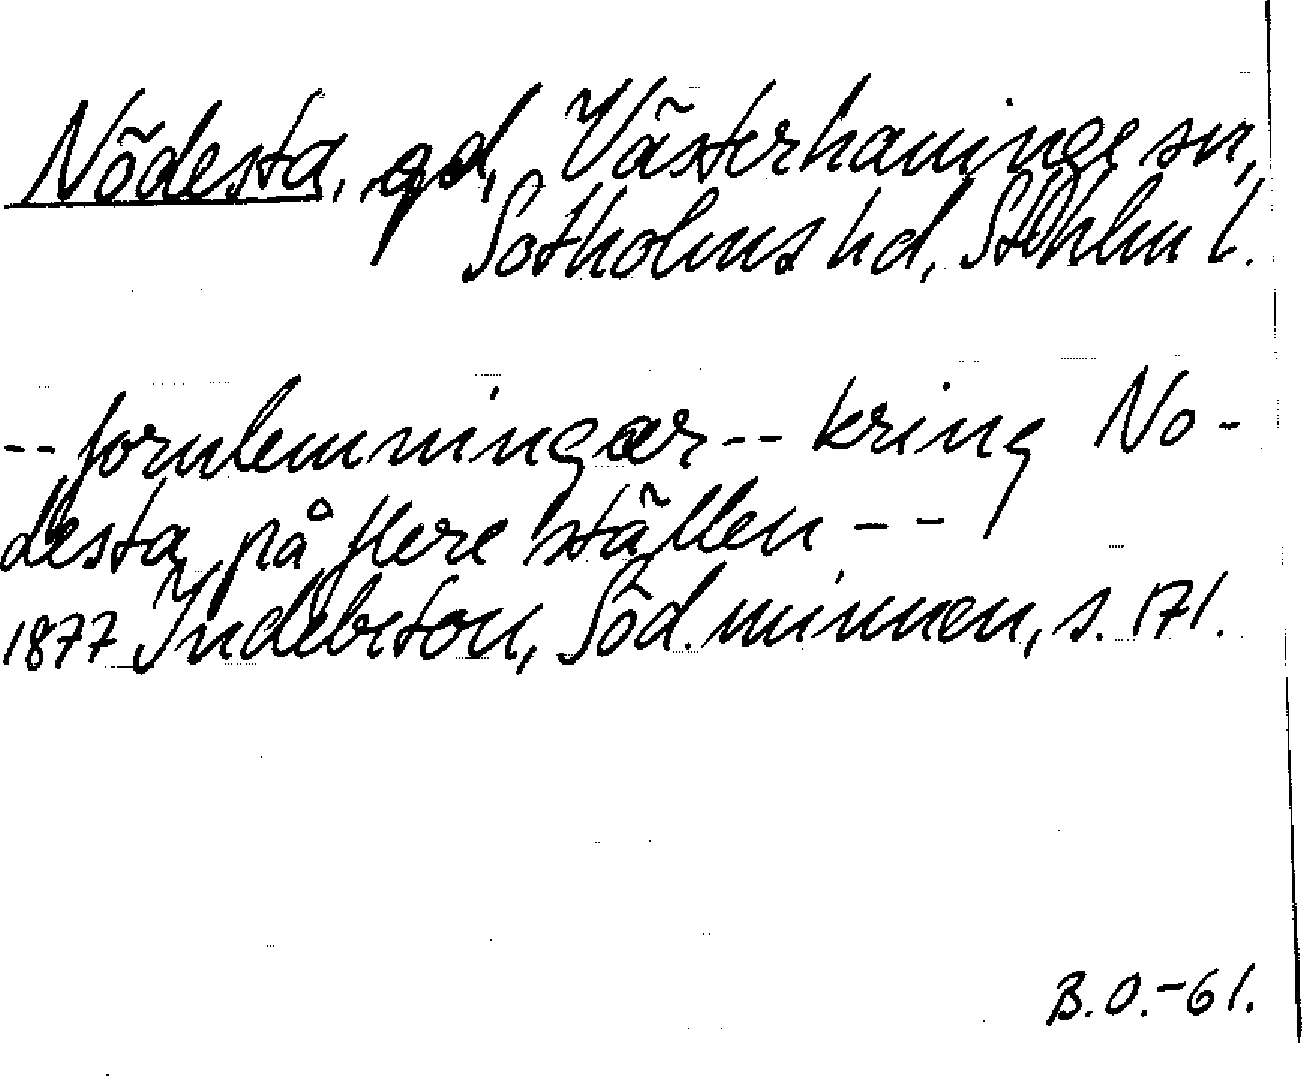 Nödesta, gd, Västerhaninge sn,
Sotholms hd, Sthlm l.
-- fornlemningar -- kring No-
desta på flere ställen --
1877 Indebetou, Söd. minnen, s. 171.
B.O.-61.